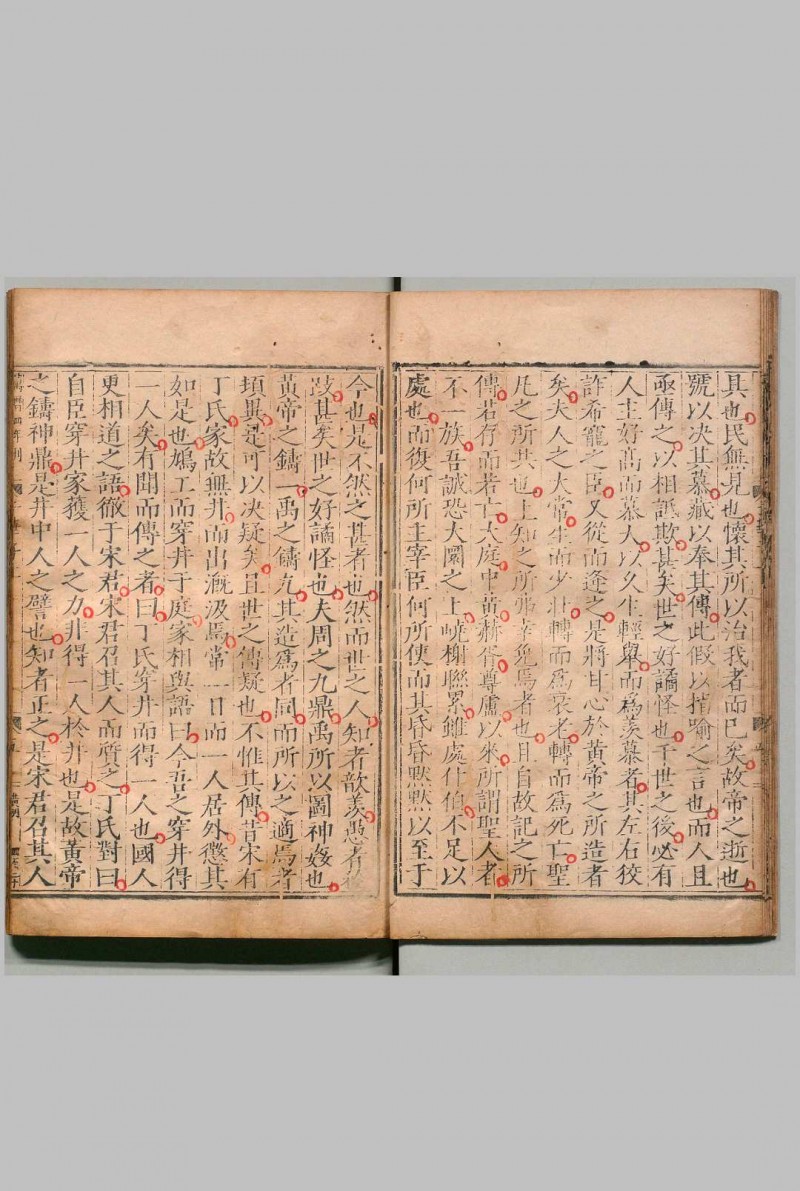 具也民無見也懷其所以治我者而已矣故帝之逝也
號以决其慕藏以奉其傳此假以指喻之言也而人且
亟傳之以相詆欺甚矣世之好譎怪也千世之後必有
人主好高而慕大以久生輕舉而爲羡慕者其左右狡
詐希寵之臣又從而逢之是將甘心於黃帝之所造者
矣夫人之大常生而少壯轉而爲衰老轉而爲死亡聖
凡之所共也上知之所弗幸免焉者也且自故記之所
傳若存而若亡大庭中黃赫胥尊盧以來所謂聖人者
不一族吾誠恐大圜之上嶢榭聯累雖處什伯不足以
處也而復何所主宰臣何所使而其昏昏默默以至于
今也是不然之甚者也然而世之人知者歆羡愚者
跂甚矣世之好譎怪也夫周之九鼎禹所以圖神姦也
黃帝之鑄一禹之鑄九其造爲者同而所以之適焉者
頃異是可以决疑矣且世之傳疑也不惟其傳昔宋有
丁氏家故無井而出溉汲焉常一日而一人居外懲其
如是也鳩工而穿井于庭家相與語曰今吾之穿井得
一人矣有聞而傳之者曰丁氏穿井而得一人也國人
更相道之語徹于宋君宋君召其人而質之丁氏對曰
自臣穿井家獲一人之力非得一人於井也是故黃帝
之鑄神鼎是井中人之譬也知者正之是宋君召其人